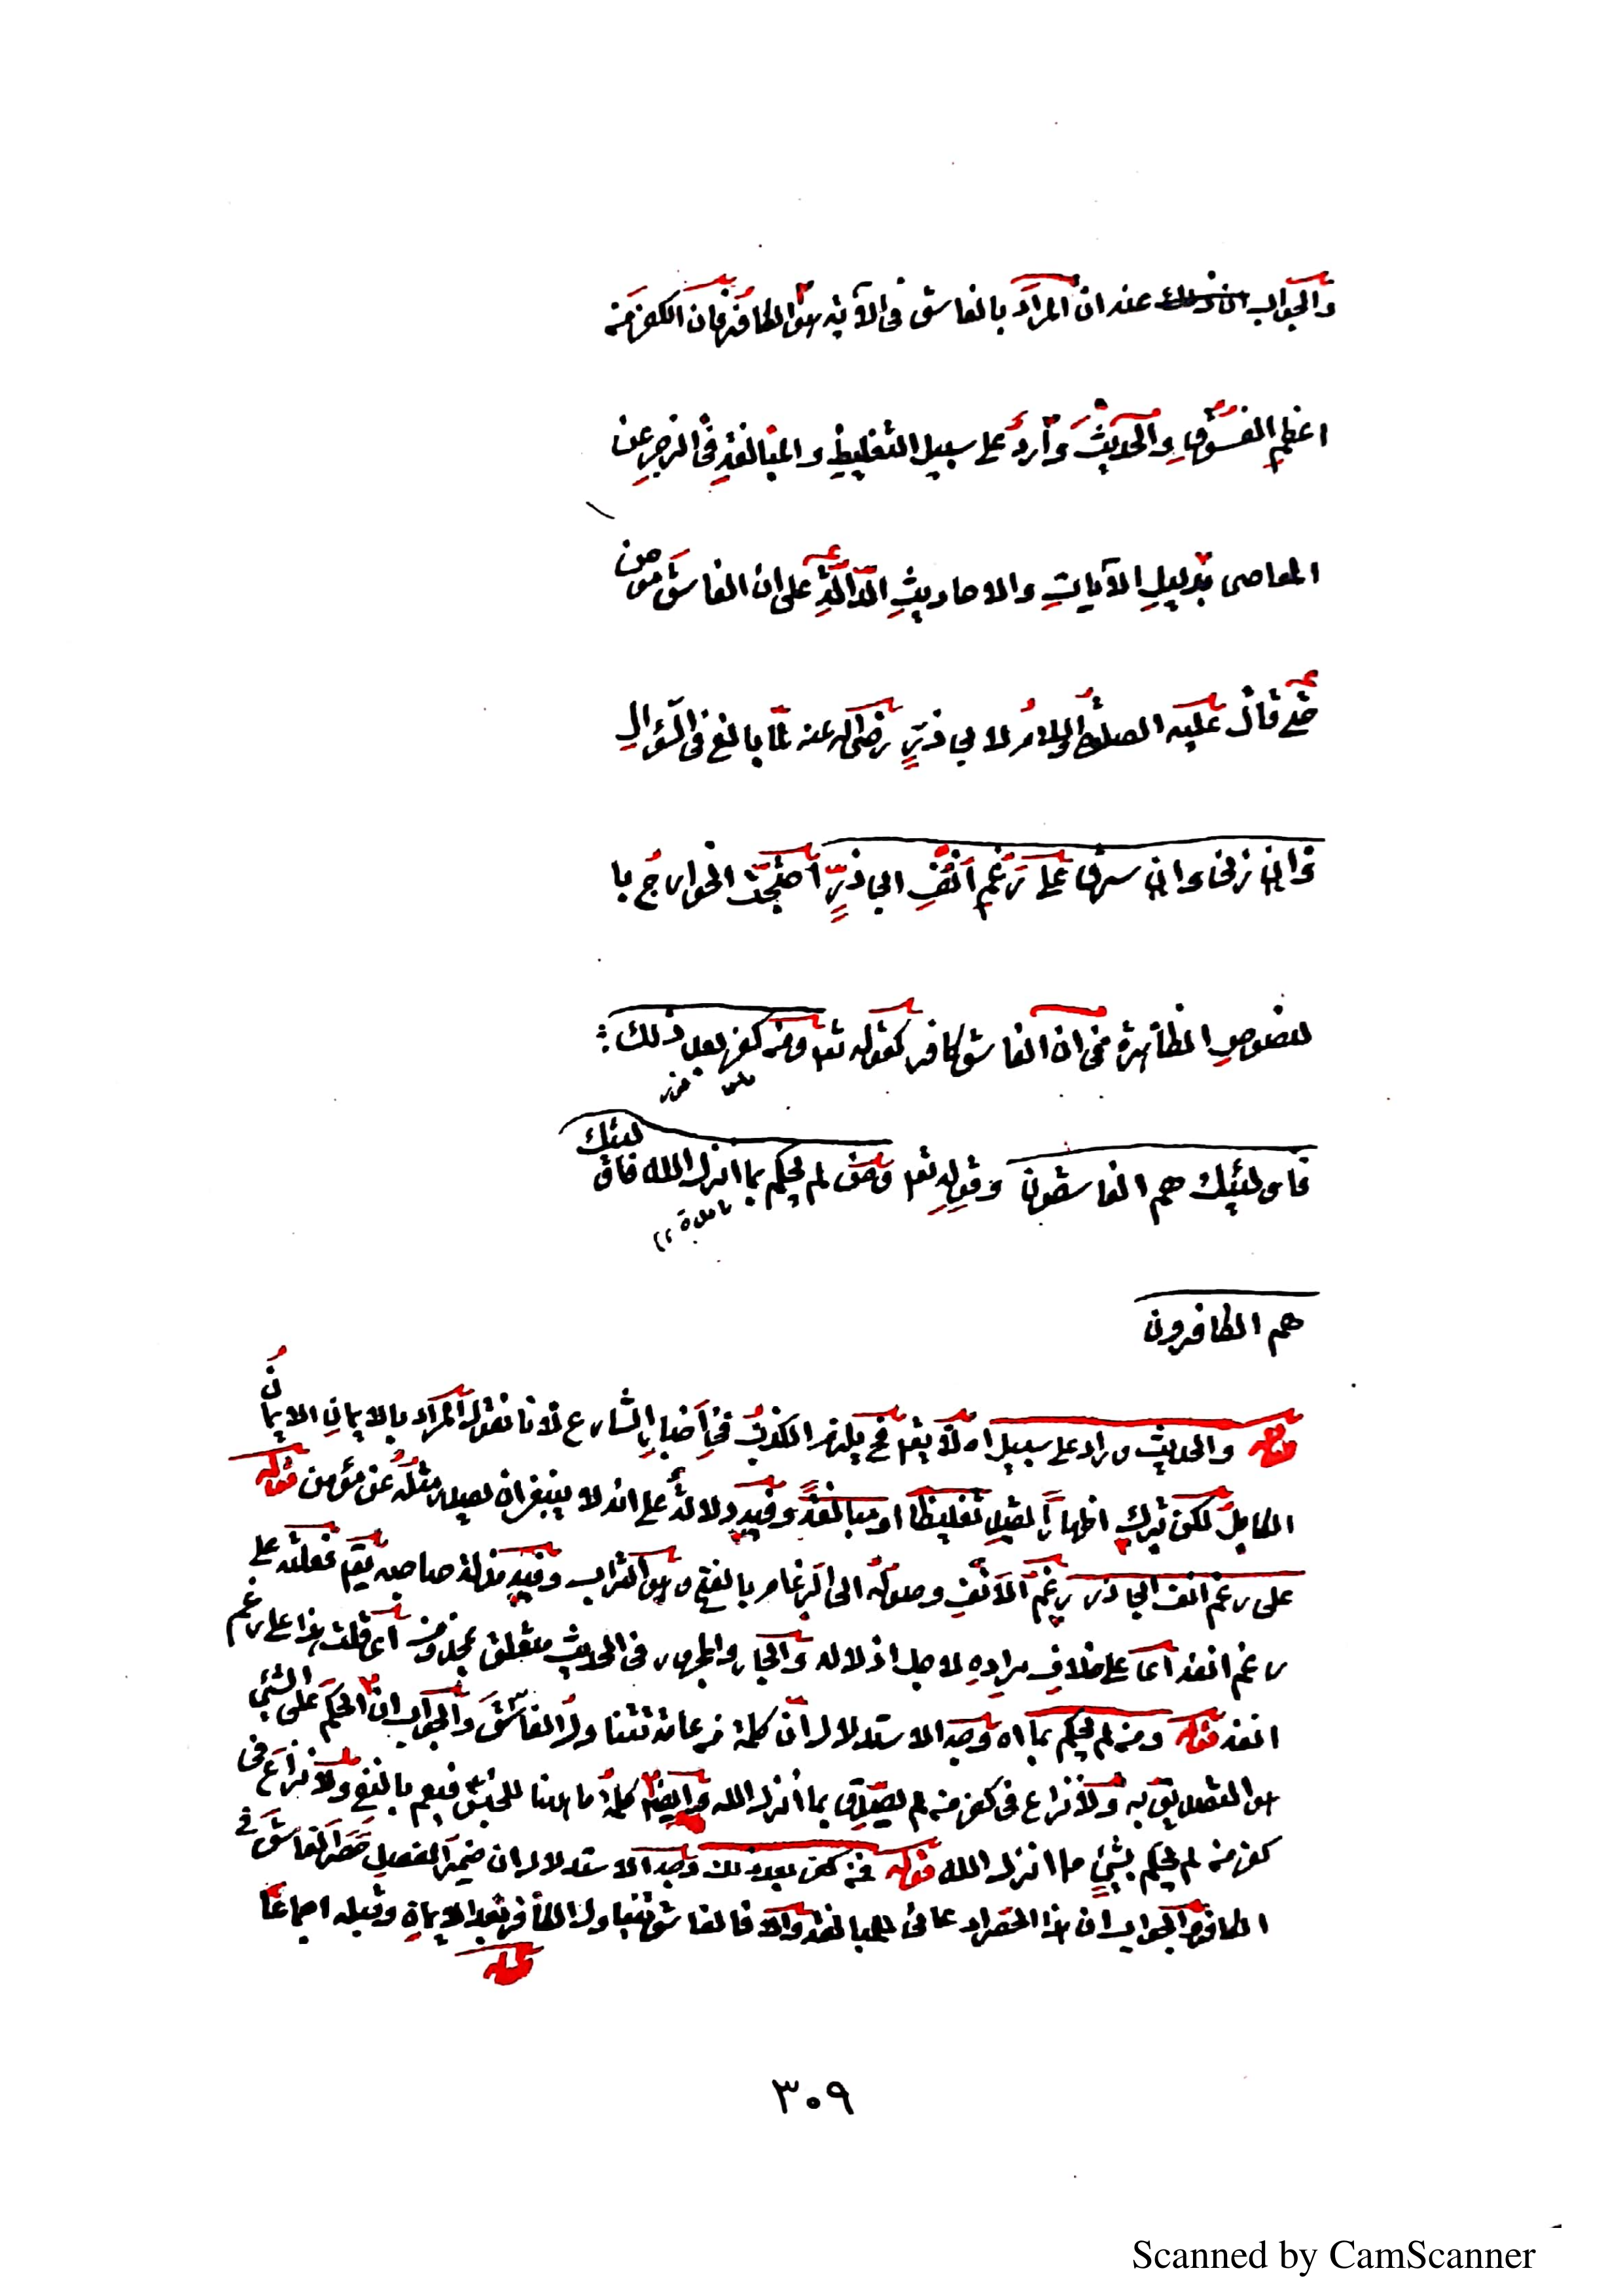 والجواب عنه ان المراد بالفاسق فى الآية هو الكافر فان الكفر من
اعظم الفسوق والحديث وارد على سبيل التغليظ والمبالغة فى الزجر عن
المعاصى بدليل الآيات والاحاديث الدالة على ان الفاسق مؤمن
حتى قال عليه الصلوة والسلام لابى ذرٍّ رضى الله عنه لمّا بالغ فى السؤال
وان زنى وان سرق على رغم انف ابى ذرٍّ احتجت الخوارج با
لنصوص الظاهرة فى ان الفاسق كافر كقوله تع ومن كفر بعد ذلك
فاولئك هم الفاسقون وقوله تع ومن لم يحكم بما انزل الله فاولئك
هم الكافرون
قوله والحديث وارد على سبيل اه لا يقم فح يلزم الكذب فى اخبار الشارع لانا نقول المراد بالايمان الايمان
الكامل لكن ترك اظهار القيد تغليظا او مبالغة وفيه دلالة على انه لا ينبغى ان يصدر مثله عن مؤمن قوله
على رغم انف ابى ذر رغم الانف وصوله الى الرغام بالفتح وهو التراب وفيه مذلة صاحبه يقم فعلته على
رغم انفه اى على خلاف مراده لاجل اذلاله والجار والمجرور فى الحديث متعلق بمحذوف اى قلت هذا على رغم
انفه قوله ومن لم يحكم بما اه وجه الاستدلال ان كلمة من عامة تتناول الفاسق والجواب ان الحكم على الشئ
هو التصديق به ولا نزاع فى كفر من لم يصدق بما انزل الله وايضا كلمة ما ههنا للجنس فيعم بالنفى ولا نزاع فى
كفر من لم يحكم بشئ مما انزل الله قوله فمن كفر بعد ذلك وجه الاستدلال ان ضمير الفصل حصر الفاسق فى
الكافر والجواب ان هذا الحصر ادعائى للمبالغة والا فالفاسق يتناول الكافر بعد الايمان وقبله اجماعا
٣٠٩
Scanned by CamScanner